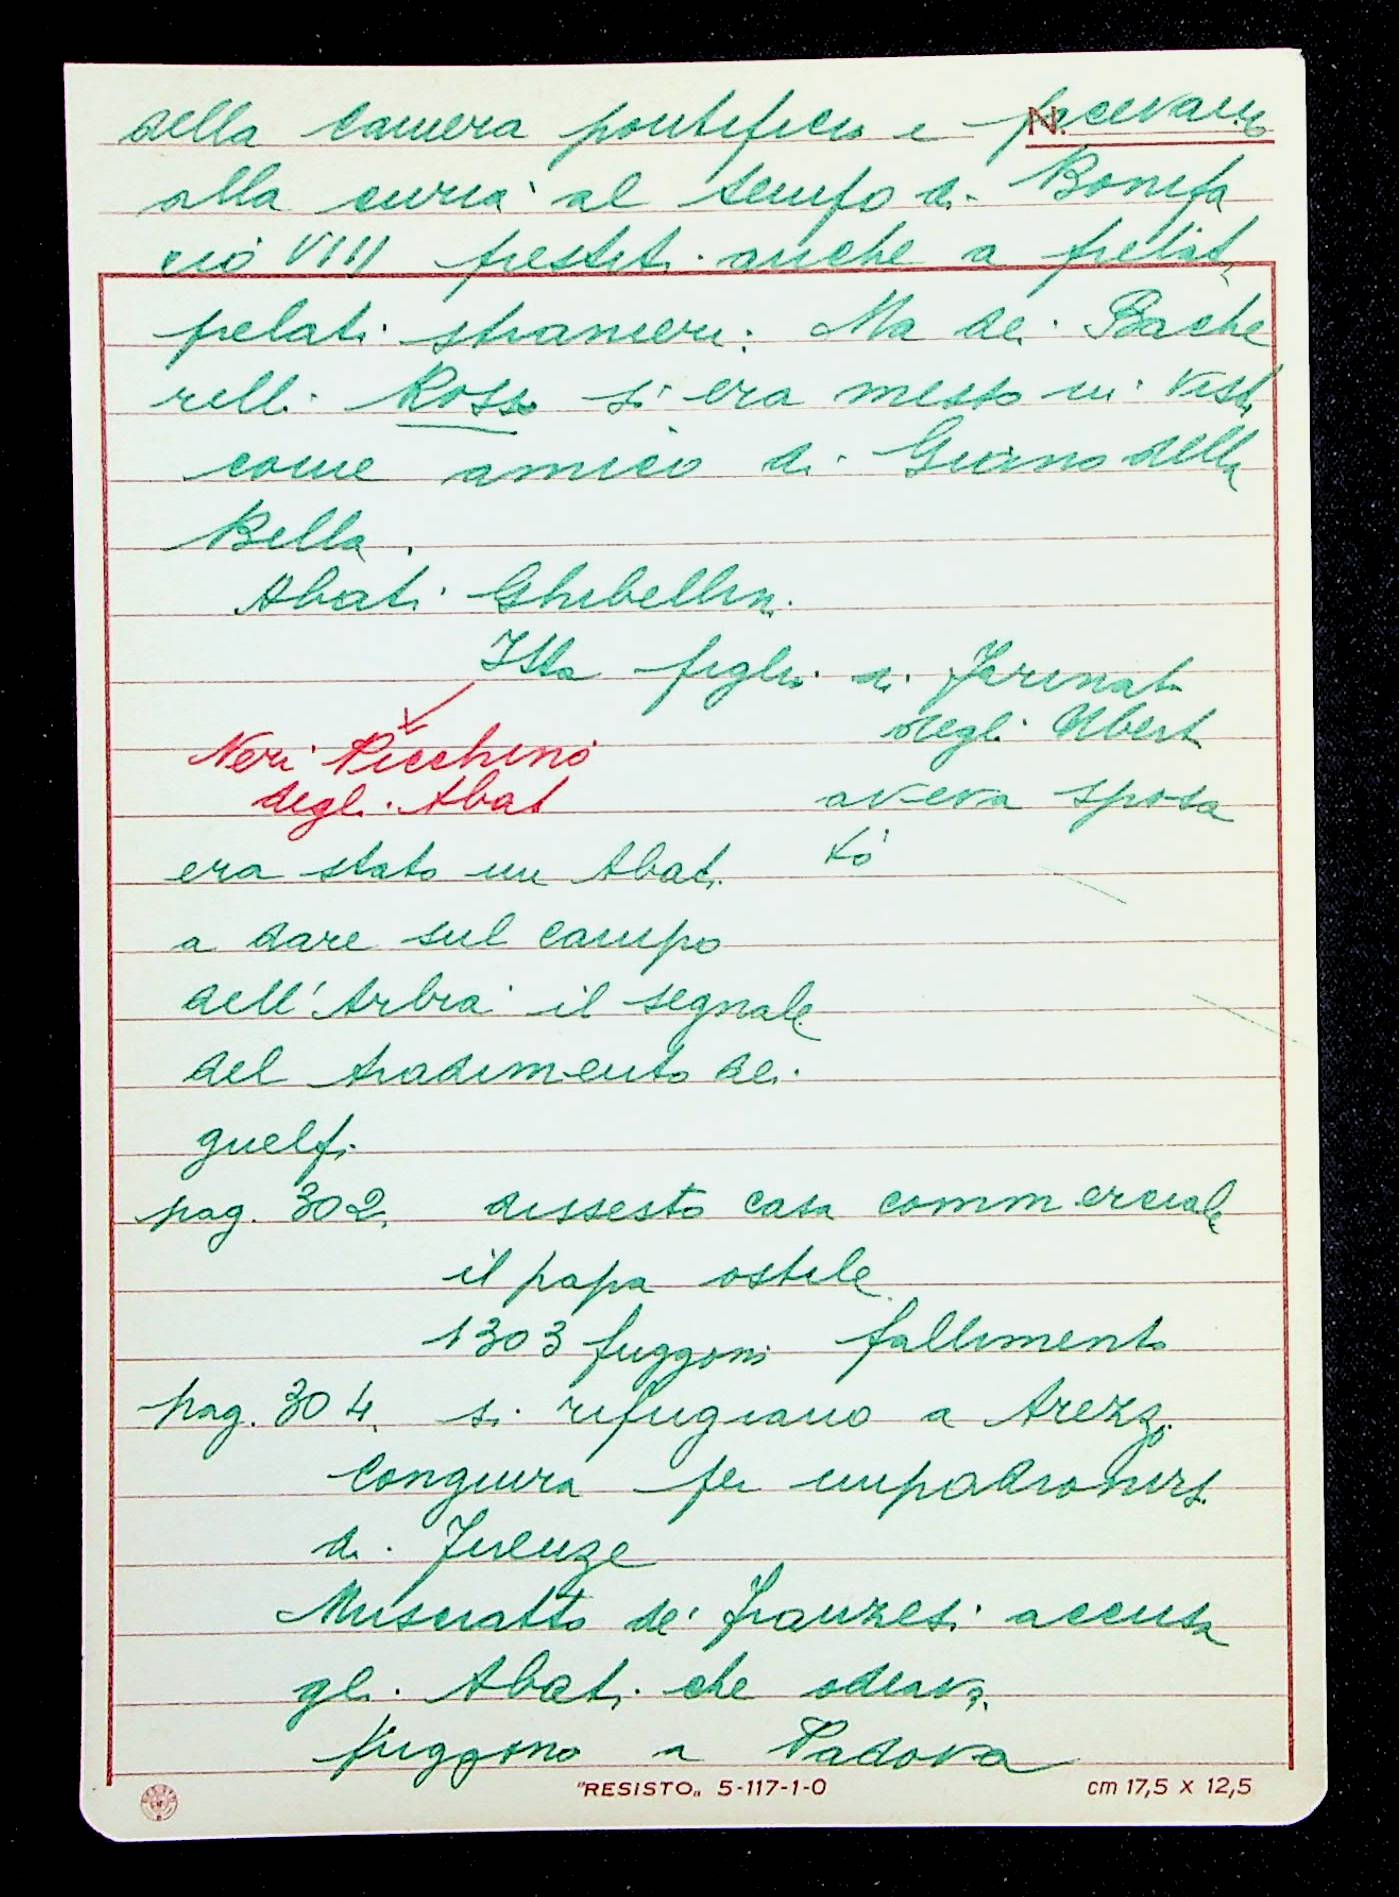 N.
della Camera pontificia e facevano
alla curia al tempo di Bonifa
cio VIII prestiti anche a prelati
prelati stranieri. Ma dei Bache
relli Rosso si era messo in vista
come amico di Giano della
Bella.
Abati Ghibellini
Itta figlia di Farinata
degli Uberti
Neri Picchino
degli Abati
aveva sposa
to
era stato un Abati
a dare sul campo
dell'Arbia il segnale
del tradimento dei
guelfi
pag. 302. dissesto casa commerciale
il papa ostile
1303 fuggoni fallimento
pag. 304. si rifugiano a Arezzo
Congiura per impadronirsi
di Firenze
Musciatto de' Franzesi accusa
gli Abati che odiava
fuggono a Padova
"RESISTO" 5-117-1-0
cm 17,5 x 12,5